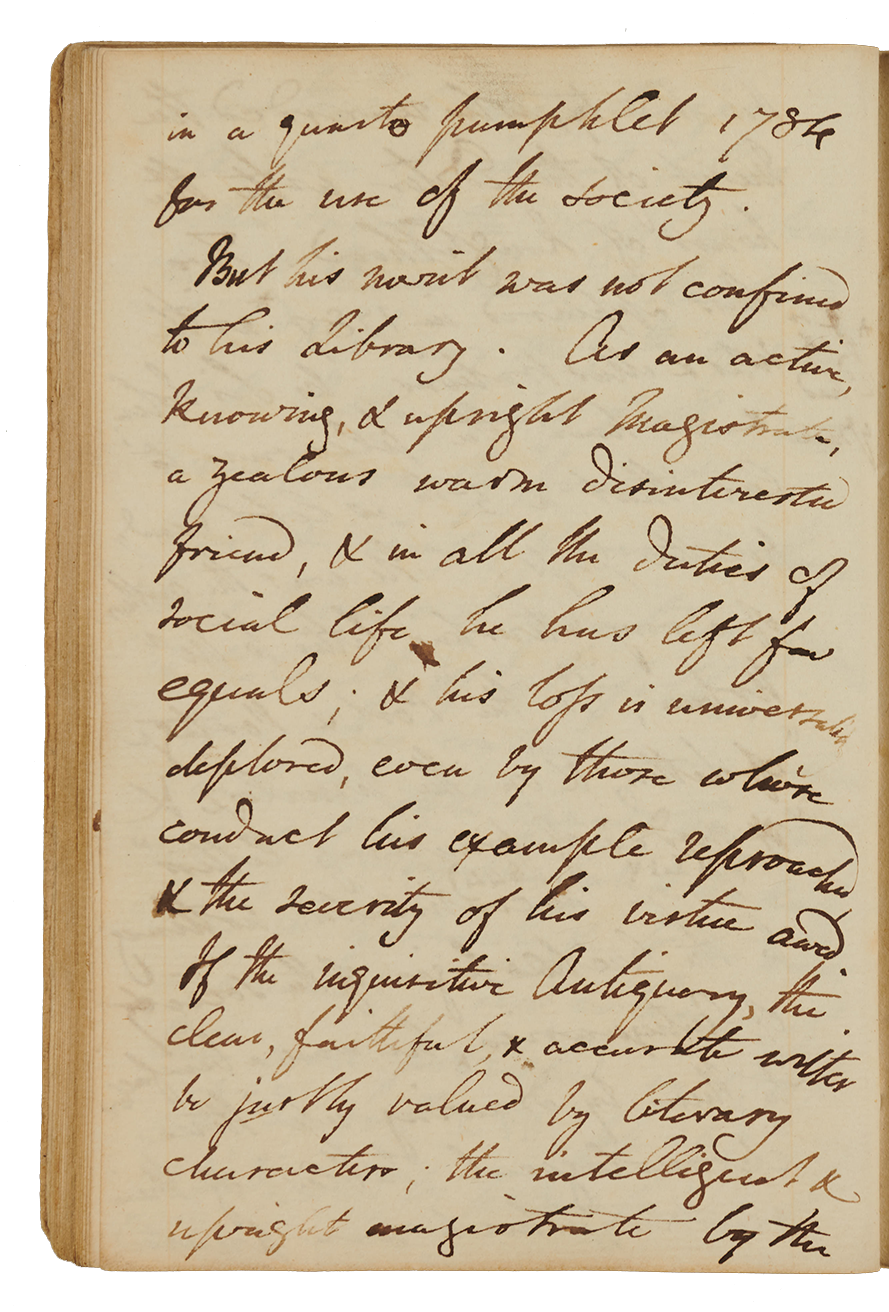 in a quarto pamphlet 1784
for the use of the society.
But his merit was not confined
to his Library. As an active,
knowing, & upright Magistrate,
a zealous warm disinterested
friend, & in all the duties of
social life he has left few
equals; & his loss is universally
deplored, even by those whose
conduct his example reproached
& the severity of his virtue awed
If the inquisitive Antiquary, the
clear, faithful, & accurate writer
be justly valued by literary
characters; the intelligent &
upright magistrate by the